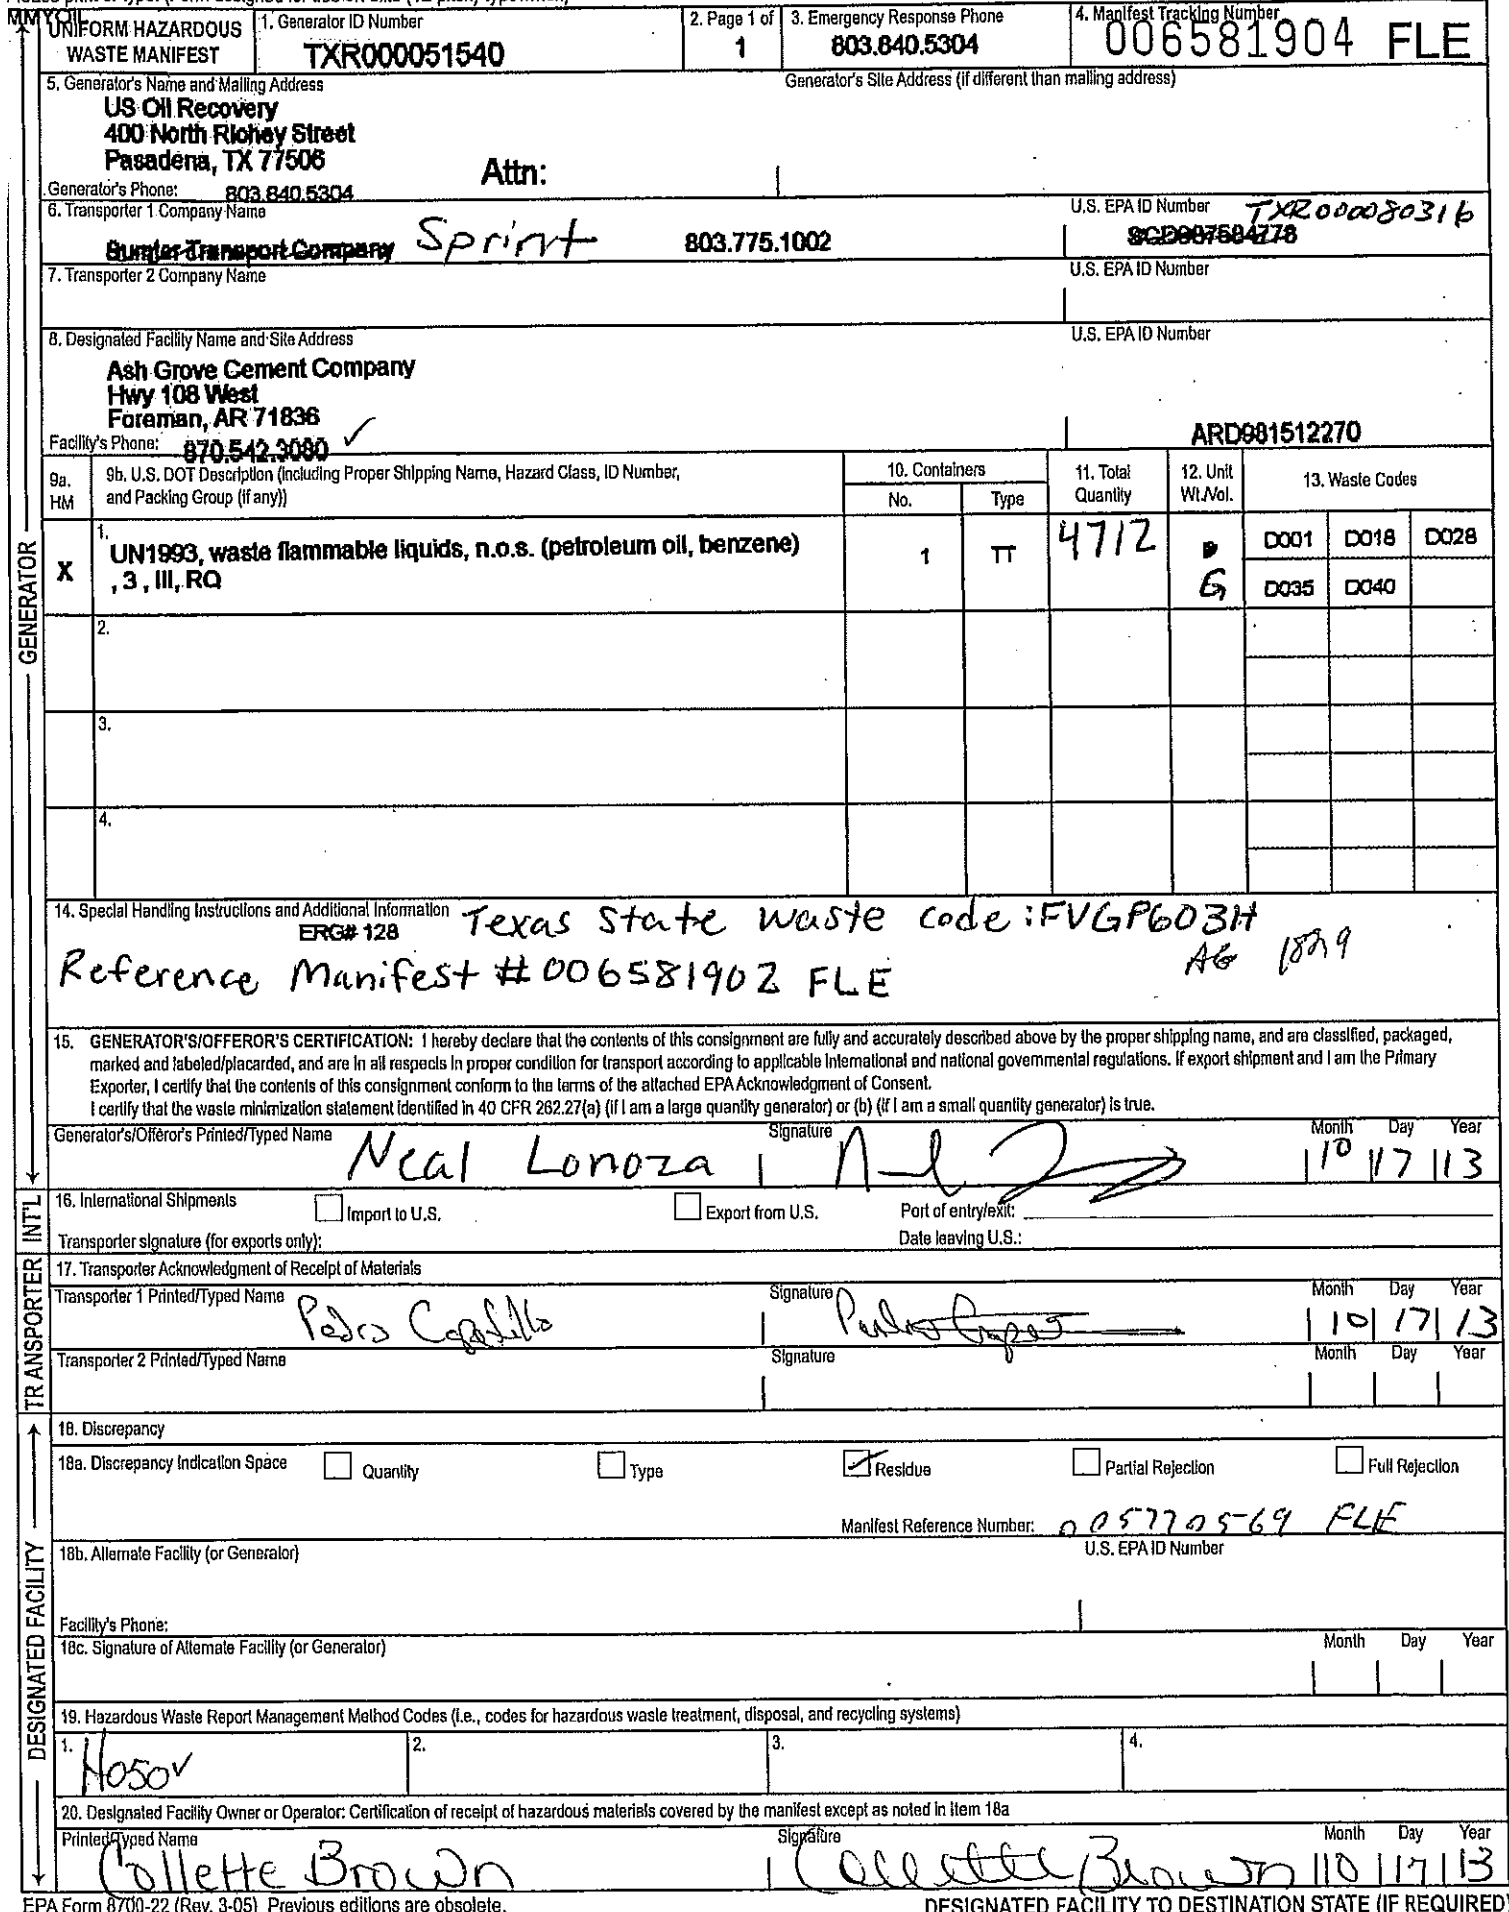 MMYOIL
UNIFORM HAZARDOUS WASTE MANIFEST
1. Generator ID Number
TXR000051540
2. Page 1 of
1
3. Emergency Response Phone
803.840.5304
4. Manifest Tracking Number
006581904 FLE
5. Generator's Name and Mailing Address
Generator's Site Address (if different than mailing address)
US Oil Recovery
400 North Richey Street
Pasadena, TX 77506
Attn:
Generator's Phone: 803.840.5304
6. Transporter 1 Company Name
U.S. EPA ID Number TXR000080316
Sumter Transport Company Sprint 803.775.1002 SCD987584778
7. Transporter 2 Company Name
U.S. EPA ID Number
8. Designated Facility Name and Site Address
U.S. EPA ID Number
Ash Grove Cement Company
Hwy 108 West
Foreman, AR 71836
Facility's Phone: 870.542.3080 ✓
ARD981512270
9a. HM
9b. U.S. DOT Description (including Proper Shipping Name, Hazard Class, ID Number, and Packing Group (if any))
10. Containers
No. Type
11. Total Quantity
12. Unit Wt./Vol.
13. Waste Codes
X
1. UN1993, waste flammable liquids, n.o.s. (petroleum oil, benzene)
, 3 , III, RQ
1 TT 4712 G
D001 D018 D028
D035 D040
2.
3.
4.
14. Special Handling Instructions and Additional Information
ERG# 128
Texas State Waste Code: FVGP603H
Reference Manifest #006581902 FLE
15. GENERATOR'S/OFFEROR'S CERTIFICATION: I hereby declare that the contents of this consignment are fully and accurately described above by the proper shipping name, and are classified, packaged,
marked and labeled/placarded, and are in all respects in proper condition for transport according to applicable international and national governmental regulations. If export shipment and I am the Primary
Exporter, I certify that the contents of this consignment conform to the terms of the attached EPA Acknowledgment of Consent.
I certify that the waste minimization statement identified in 40 CFR 262.27(a) (if I am a large quantity generator) or (b) (if I am a small quantity generator) is true.
Generator's/Offeror's Printed/Typed Name
Signature
Month Day Year
Neal Lonoza
10 17 13
16. International Shipments
Import to U.S.
Export from U.S.
Port of entry/exit:
Transporter signature (for exports only):
Date leaving U.S.:
17. Transporter Acknowledgment of Receipt of Materials
Transporter 1 Printed/Typed Name
Signature
Month Day Year
Pedro
10 17 13
Transporter 2 Printed/Typed Name
Signature
Month Day Year
18. Discrepancy
18a. Discrepancy Indication Space
Quantity
Type
Residue
Partial Rejection
Full Rejection
Manifest Reference Number: 005770569 FLE
18b. Alternate Facility (or Generator)
U.S. EPA ID Number
Facility's Phone:
18c. Signature of Alternate Facility (or Generator)
Month Day Year
19. Hazardous Waste Report Management Method Codes (i.e., codes for hazardous waste treatment, disposal, and recycling systems)
1. H050 ✓
2.
3.
4.
20. Designated Facility Owner or Operator: Certification of receipt of hazardous materials covered by the manifest except as noted in Item 18a
Printed/Typed Name
Signature
Month Day Year
Collette Brown
Collette Brown
10 17 13
EPA Form 8700-22 (Rev. 3-05) Previous editions are obsolete.
DESIGNATED FACILITY TO DESTINATION STATE (IF REQUIRED)
GENERATOR
INT'L
TRANSPORTER
DESIGNATED FACILITY